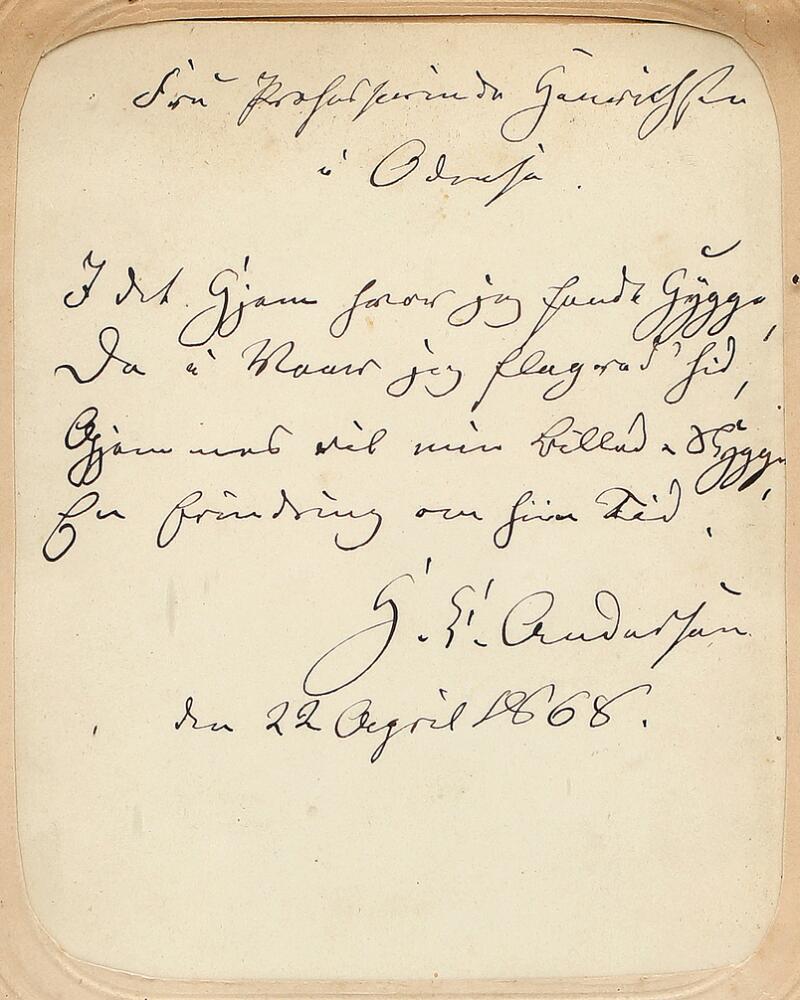 Fru Professorinde Henrichsen
i Odense.
I det Hjem hvor jeg fandt Hygge,
Da i Vaar jeg flagred' hid,
Gjemmes vil min Billed-Skygge,
En Erindring om hiin Tid.
H. C. Andersen
den 22 April 1868.